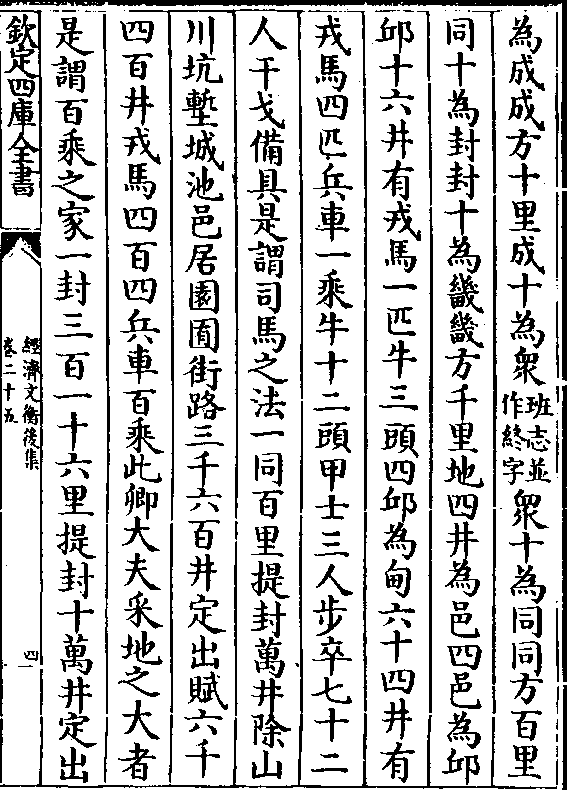 為成成方十里成十為衆班志並作終字衆十為同同方百里
同十為封封十為畿畿方千里地四井為邑四邑為邱
邱十六井有戎馬一匹牛三頭四邱為甸六十四井有
戎馬四匹兵車一乘牛十二頭甲士三人步卒七十二
人干戈備具是謂司馬之法一同百里提封萬井除山
川坑塹城池邑居園囿街路三千六百井定出賦六千
四百井戎馬四百四兵車百乘此卿大夫采地之大者
是謂百乘之家一封三百一十六里提封十萬井定出
欽定四庫全書
經濟文衡後集
卷二十五
四